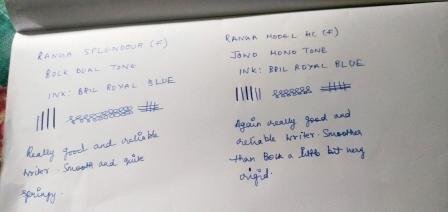 RANGA SPLENDOUR (F)
BOCK DUAL TONE
INK: BRIL ROYAL BLUE
Really good and reliable
writer. Smooth and quite
springy.
RANGA MODEL 4C (F)
JOWO MONO TONE
INK: BRIL ROYAL BLUE
Again really good and
reliable writer. Smoother
than Bock a little but very
rigid.